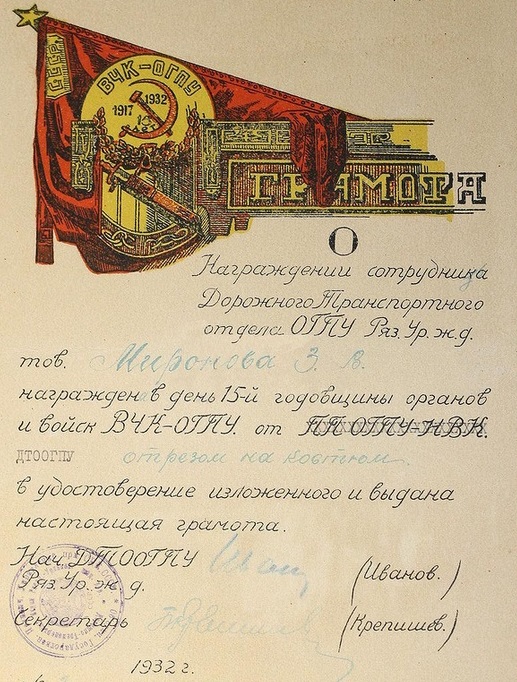 СССР
ВЧК-ОГПУ
1917 1932
ГРАМОТА
О
Награждении сотрудника
Дорожного Транспортного
отдела ОГПУ Ряз.Ур.ж.д.
тов. Миронова З. В.
награжден в день 15-й годовщины органов
и войск ВЧК-ОГПУ. от ПП ОГПУ-НВК.
ДТООГПУ отрезом на костюм
в удостоверение изложенного и выдана
настоящая грамота.
Нач ДТООГПУ
Ряз.Ур.ж.д. (Иванов.)
Секретарь (Крепишев.)
1932 г.